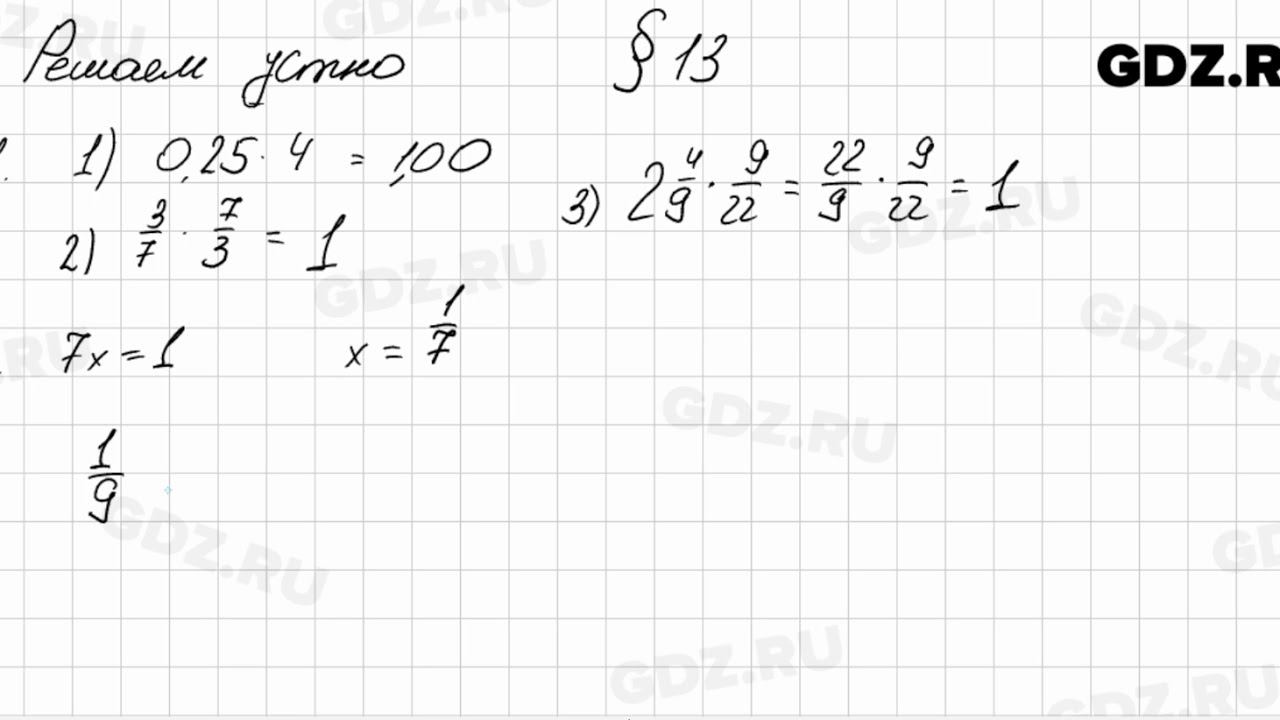 Решаем устно § 13
GDZ.R
1. 1) 0,25 · 4 = 1,00
2) 3/7 · 7/3 = 1
3) 2 4/9 · 9/22 = 22/9 · 9/22 = 1
7x = 1 x = 1/7
1/9
GDZ.RU
GDZ.RU
GDZ.RU
GDZ.RU
GDZ.RU
GDZ.RU
GDZ.RU